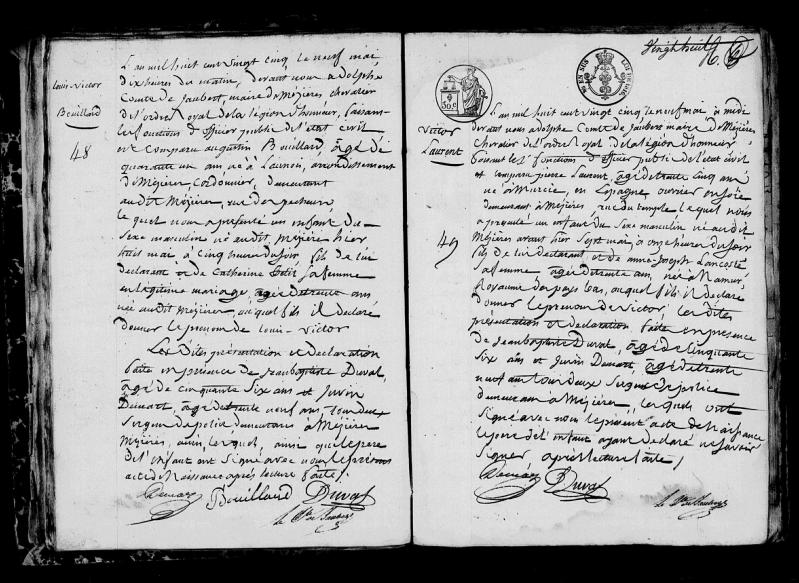 Louis-Victor
Bouillard
48
L'an mil huit cent vingt cinq, le neuf mai
dix heures du matin, devant nous adolphe
Comte de Jaubert, maire de Mézières chevalier
de l'ordre Royal de la légion d'honneur, faisant
les fonctions d'officier public de l'état civil
est comparu augustin Bouillard, âgé de
quarante un ans né à Launois, arrondissement
de Mézières, Cordonnier, demeurant
audit Mézières, rue des
lequel nous a présenté un enfant du
sexe masculin né audit Mézières hier
huit mai, à cinq heures du soir, fils de lui
déclarant et de Catherine Petit sa femme
en légitime mariage, agée de trente ans
née audit Mézières, auquel fils il déclare
donner le prénom de louis-victor
Les Dites présentation et déclaration
faite en présence de Jean baptiste Duval,
âgé de cinquante six ans et
agé de trente neuf ans, tous deux
Sergens de police demeurans à Mézières
Mézières, amis, lesquels, ainsi que le père
de l'enfant ont signé avec nous le présent
acte de Naissance après lecture faite /
Bouillard Duval
vingt huit
50.c
Victor
Laurent
49
L'an mil huit cent vingt cinq, le neuf mai à midi
devant nous adolphe Comte de Jaubert maire de Mézières
Chevalier de l'ordre Royal de la légion d'honneur
faisant les fonctions d'officier public de l'état civil
est comparu pierre Laurent, agé de trente cinq ans
né à Murcie, en Espagne ouvrier en soie
demeurant à Mézières rue du temple lequel nous
a présenté un enfant du sexe masculin né audit
Mézières avant hier sept mai, à onze heures du soir
fils de lui déclarant et de anne-joseph
sa femme, agée de trente ans, née à Namur,
Royaume des pays bas, auquel fils il déclare
donner le prénom de victor, les dites
présentation et déclaration faite en présence
de Jean baptiste Duval, âgé de cinquante
six ans et agé de trente
neuf ans tous deux Sergens de police
demeurans à Mézières, lesquels ont
signé avec nous le présent acte de Naissance
le père de l'enfant ayant déclaré ne savoir
signer après lecture faite /
Duval